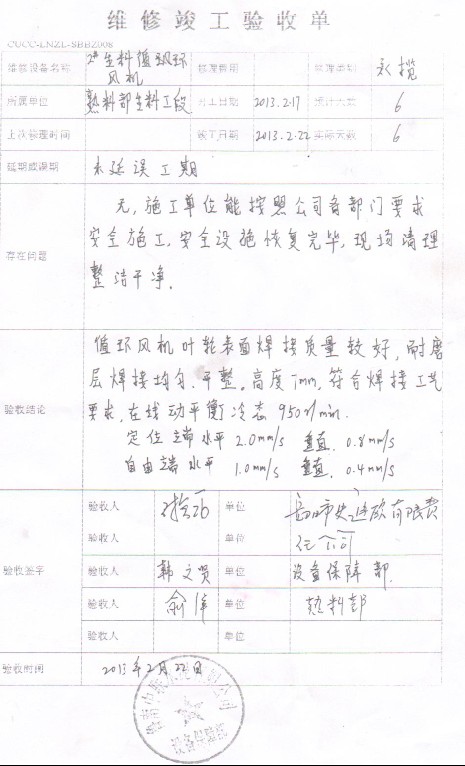 维修竣工验收单
CUCC-LNZL-SBBZ008
维修设备名称 2#生料循环风机 修理费用 修理类别 永揽
所属单位 熟料部生料工段 开工日期 2013.2.17 预计天数 6
上次修理时间 竣工日期 2013.2.22 实际天数 6
延期或误期 未延误工期
存在问题
无,施工单位能按照公司各部门要求
安全施工,安全设施恢复完毕,现场清理
整洁干净。
验收结论
循环风机叶轮表面焊接质量较好,耐磨
层焊接均匀、平整,高度7mm,符合焊接工艺
要求,在线动平衡冷态950r/min.
定位端水平 2.0mm/s 垂直 0.8mm/s
自由端水平 1.0mm/s 垂直 0.4mm/s
验收签字
验收人 单位 有限责
验收人 单位 任公司
验收人 韩文贤 单位 设备保障部
验收人 俞 单位 熟料部
验收人 单位
验收时间 2013年2月22日
设备保障部